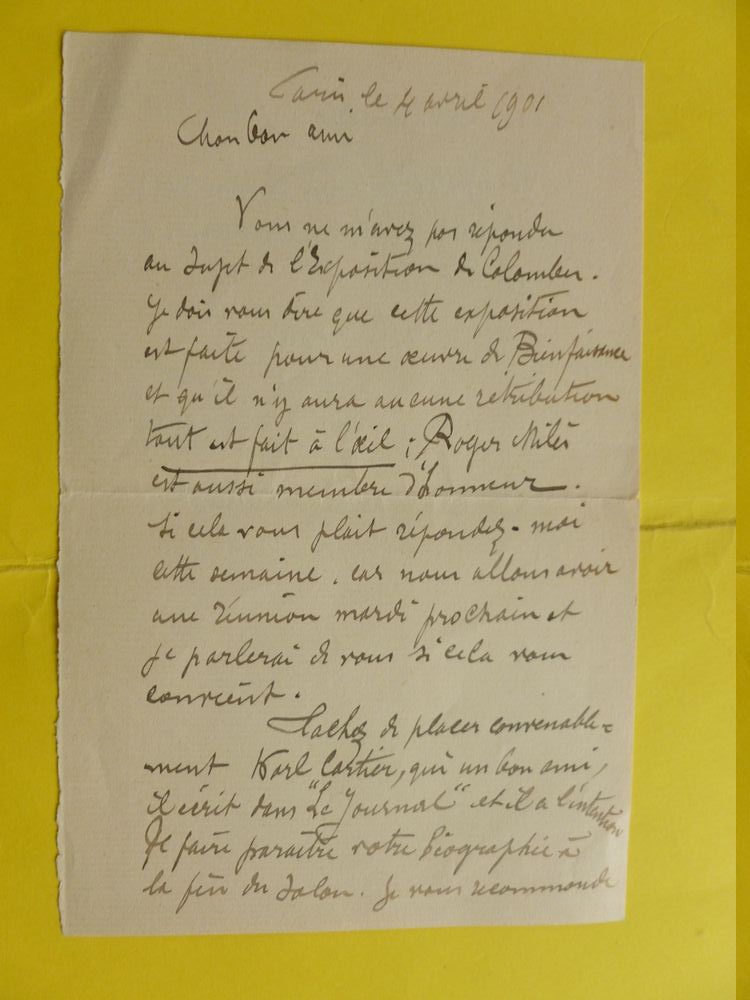 Paris le 4 avril 1901
Mon bon ami
Vous ne m'avez pas répondu
au sujet de l'Exposition de Colombes.
Je dois vous dire que cette exposition
est faite pour une œuvre de Bienfaisance
et qu'il n'y aura aucune rétribution
tout est fait à l'œil ; Roger Milès
est aussi membre d'honneur.
Si cela vous plait répondez-moi
cette semaine, car nous allons avoir
une réunion mardi prochain et
je parlerai de vous si cela vous
convient.
Tachez de placer convenable=
ment Karl Cartier, qui un bon ami,
il écrit dans "Le Journal" et il a l'intention
de faire paraitre votre biographie à
la fin du Salon. Je vous recommande